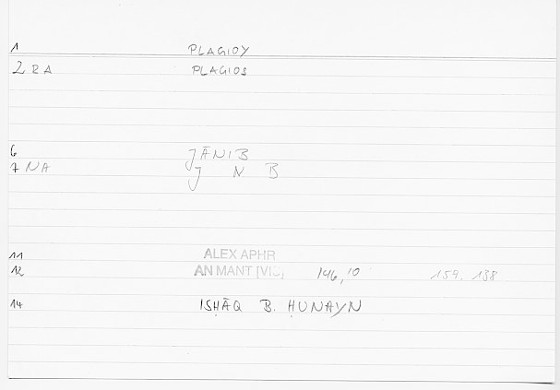 1 PLAGIOY
2 RA PLAGIOS
6 JĀNIB
7 NA J N B
11 ALEX APHR
12 AN MANT [VIC,] 146,10 159. 138
14 ISḤĀQ B. ḤUNAYN